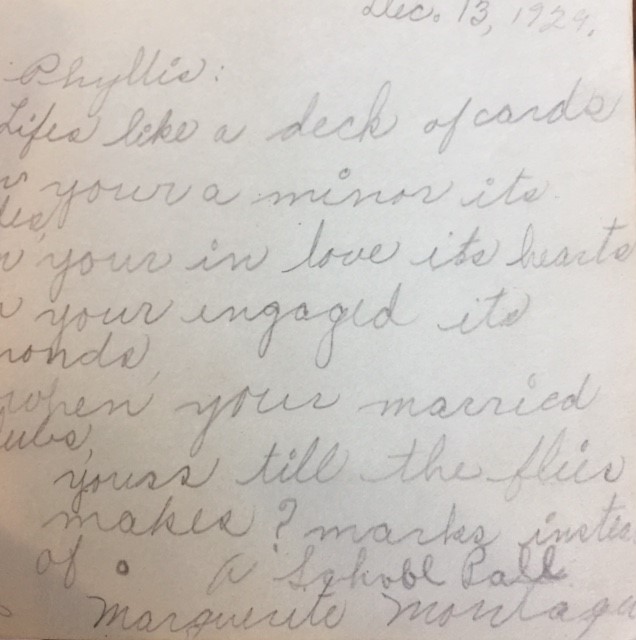 Dec. 13, 1929.
Phyllis:
Lifes like a deck of cards
your a minor its
des,
your in love its hearts
your engaged its
monds,
when your married
lubs,
yours till the flies
makes ? marks inste
of .
A School Pall
Marguerite Montagu